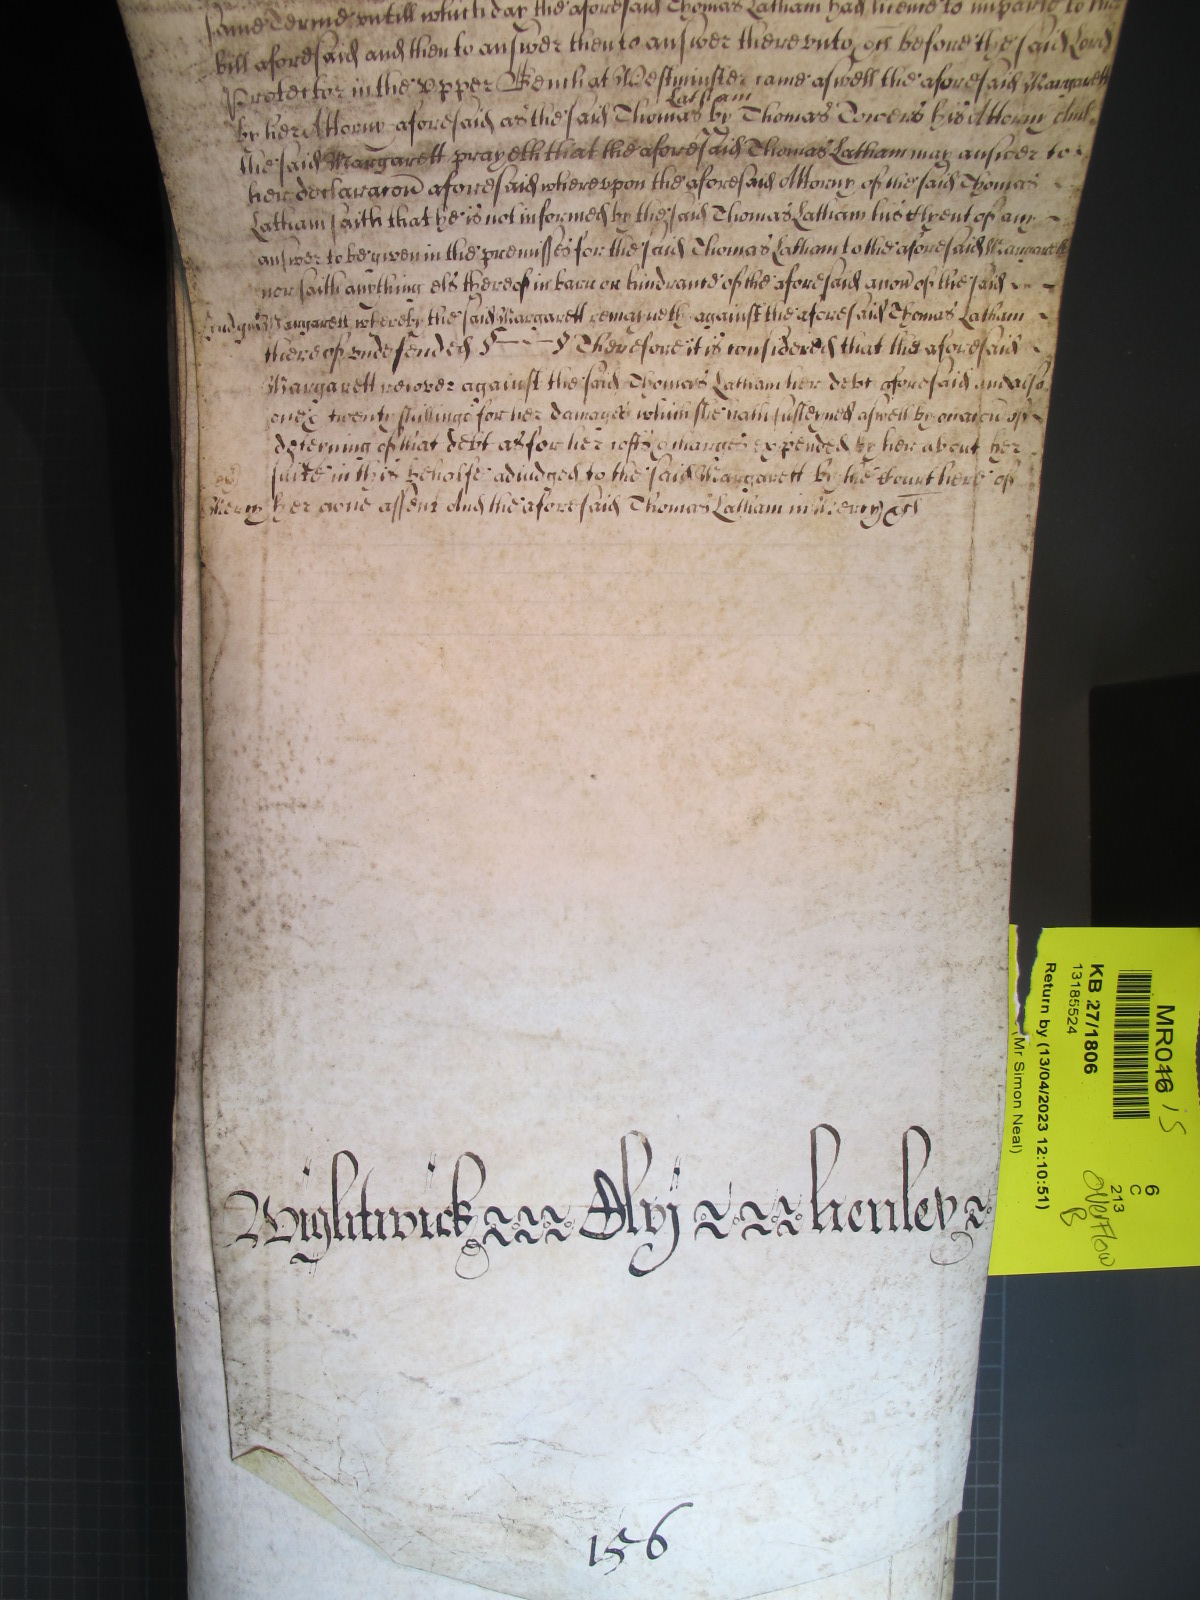 same Terme untill which day the aforesaid Thomas Latham had licence to imparle to the
bill aforesaid and then to answer then to answer therevnto &c before the said Lord
Protector in the vpper Bench at Westminster came aswell the aforesaid Margarett
by her Attorny aforesaid as the said Thomas Latham by Thomas Towers his Attorny And
the said Margarett prayeth that the aforesaid Thomas Latham may answer to
her declaracon aforesaid wherevpon the aforesaid Attorny of the said Thomas
Latham saith that he is not informed by the said Thomas Latham his Clyent of any
answer to be given in the premisses for the said Thomas Latham to the aforesaid Margarett
nor saith anything els thereof in barr or hindrance of the aforesaid accon of the said
Judgmt Margarett whereby the said Margarett remayneth against the aforesaid Thomas Latham
thereof vndefended Therefore it is considered that the aforesaid
Margarett recover against the said Thomas Latham her debt aforesaid and also
one & twenty shillings for her damages which she hath susteyned aswell by occacon of
deteyning of that debt as for her costs & charges expended by her about her
suite in this behalfe adiudged to the said Margarett by the Court here of
Mercy her owne assent And the aforesaid Thomas Latham in Mercy &c
Wightwick Oly henley
156
MR046 15
KB 27/1806
13185524
Return by (13/04/2023 12:10:51)
(Mr Simon Neal)
6
C
213
OVERFLOW
B